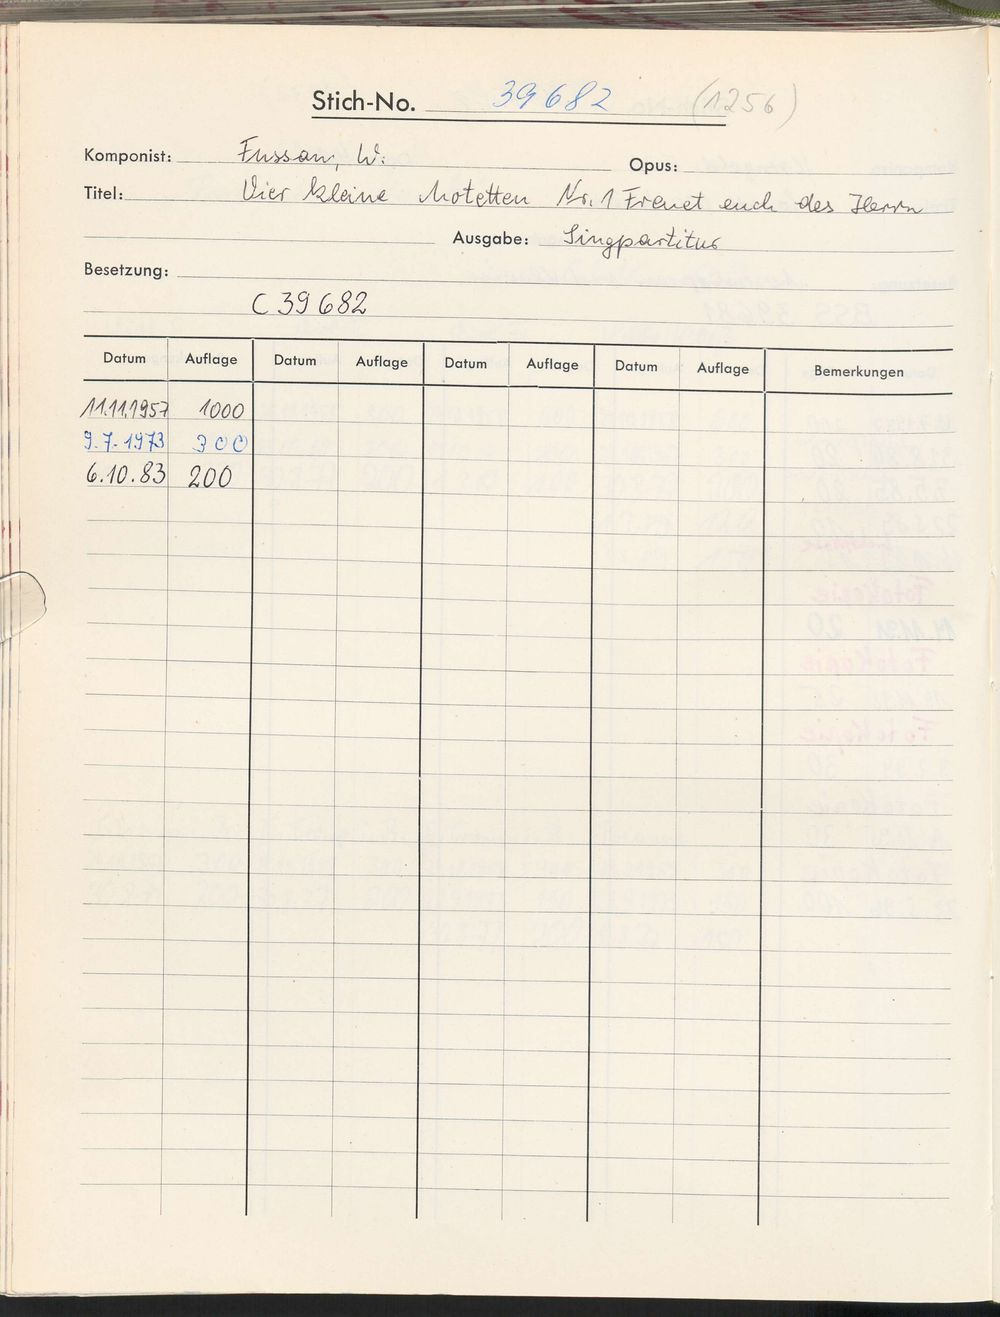 Stich-No. 39682 (1256)
Komponist: Fussan, W. Opus:
Titel: Vier kleine Motetten Nr. 1 Freuet euch des Herrn
Ausgabe: Singpartitur
Besetzung:
C 39 682
Datum Auflage Datum Auflage Datum Auflage Datum Auflage Bemerkungen
11.11.1957 1000
9.7.1973 300
6.10.83 200